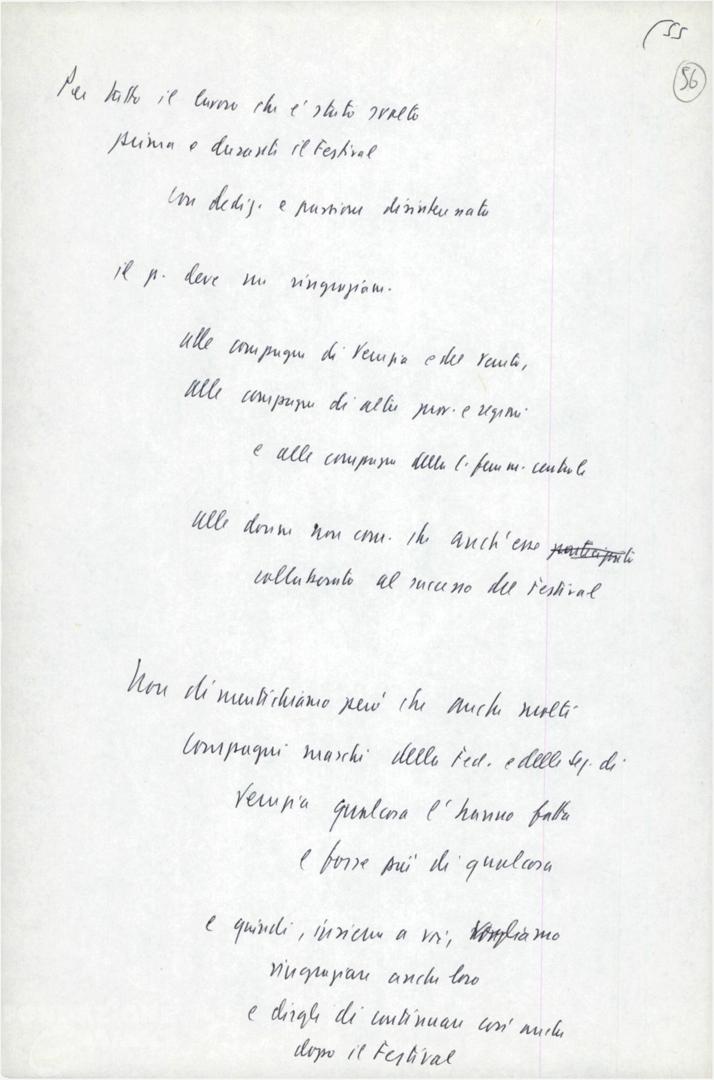 155
56
Per tutto il lavoro che è stato svolto
prima e durante il Festival
con dediz. e passione disinteressata
il p. deve un ringraziam.
alle compagne di Venezia e del Veneto,
alle compagne di altre prov. e regioni
e alle compagne della C. femm. centrale
alle donne non com. che anch'esse partecipato
collaborato al successo del Festival
Non dimentichiamo però che anche molti
compagni maschi della Fed. e delle Sez. di
Venezia qualcosa l'hanno fatta
e forse più di qualcosa
e quindi, insieme a voi, vogliamo
ringraziare anche loro
e dirgli di continuare così anche
dopo il Festival